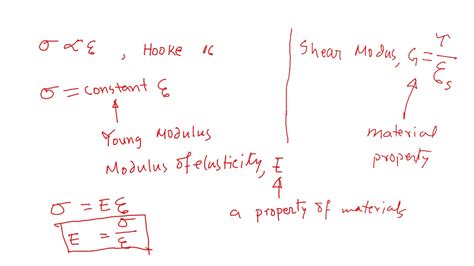 σ ∝ ε , Hooke is
σ = constant ε
Young Modulus
Modulus of elasticity, E
a property of materials
σ = E ε
E = σ/ε
Shear Modus, G = τ/ε_s
material
property